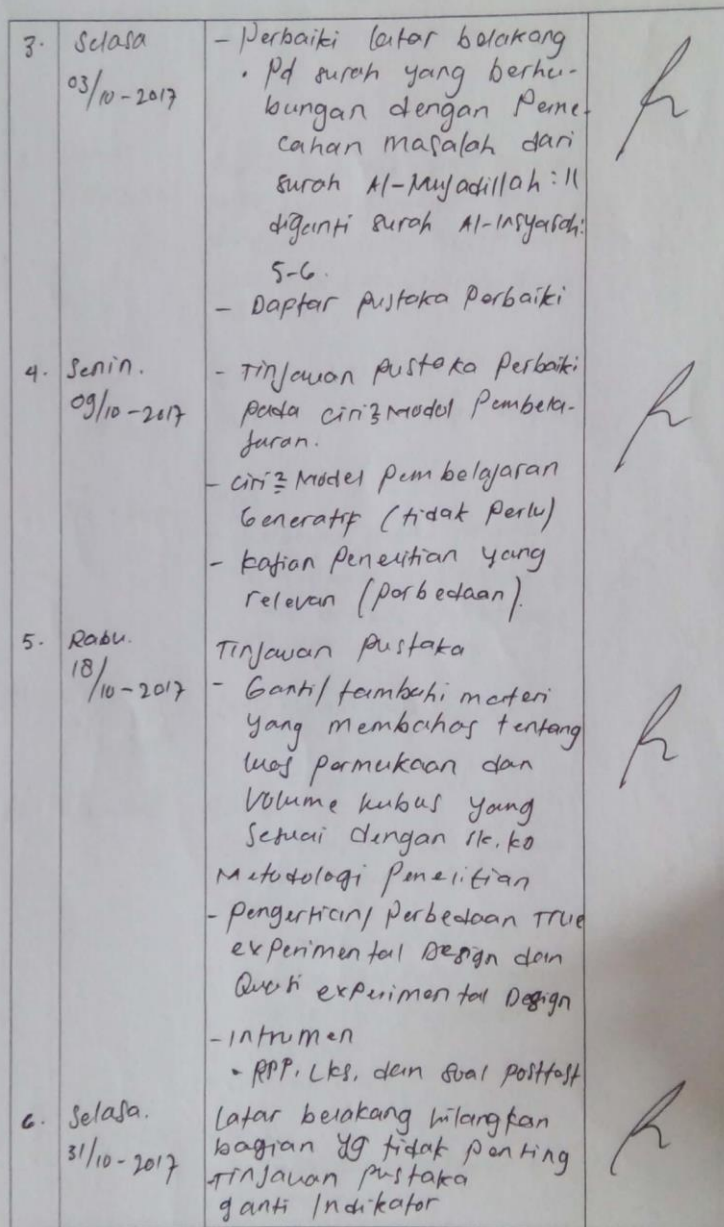 3. Selasa
03/10-2017
- Perbaiki latar belakang
• Pd surah yang berhu-
bungan dengan Peme-
cahan masalah dari
surah Al-Mujadillah : 11
diganti surah Al-Insyaroh:
5-6.
- Daptar pustaka Perbaiki
4. Senin.
09/10-2017
- Tinjauan pustaka Perbaiki
pada ciri2 Model Pembela-
jaran.
- ciri2 Model pembelajaran
Generatif (tidak Perlu)
- kajian Penelitian yang
relevan (perbedaan).
5. Rabu.
18/10-2017
Tinjauan pustaka
- Ganti/ tambahi materi
yang membahas tentang
luas permukaan dan
Volume kubus yang
Sesuai dengan sk.kd
Metodologi Penelitian
- Pengertian/ Perbedaan True
experimental Design dan
Quasi experimental Design
- Intrumen
• RPP, Lks, dan soal posttest
6. Selasa.
31/10-2017
Latar belakang hilangkan
bagian yg tidak penting
Tinjauan pustaka
ganti Indikator